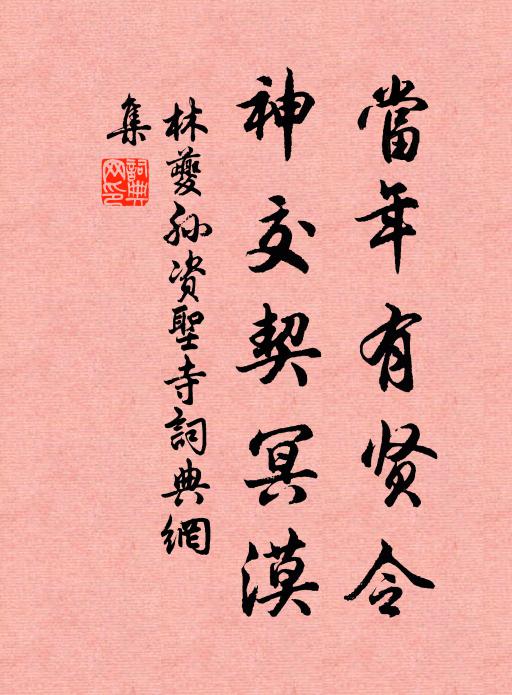 當年有贤令
神交契冥漠
林夔孙资聖寺詞典網
集
詞典網印